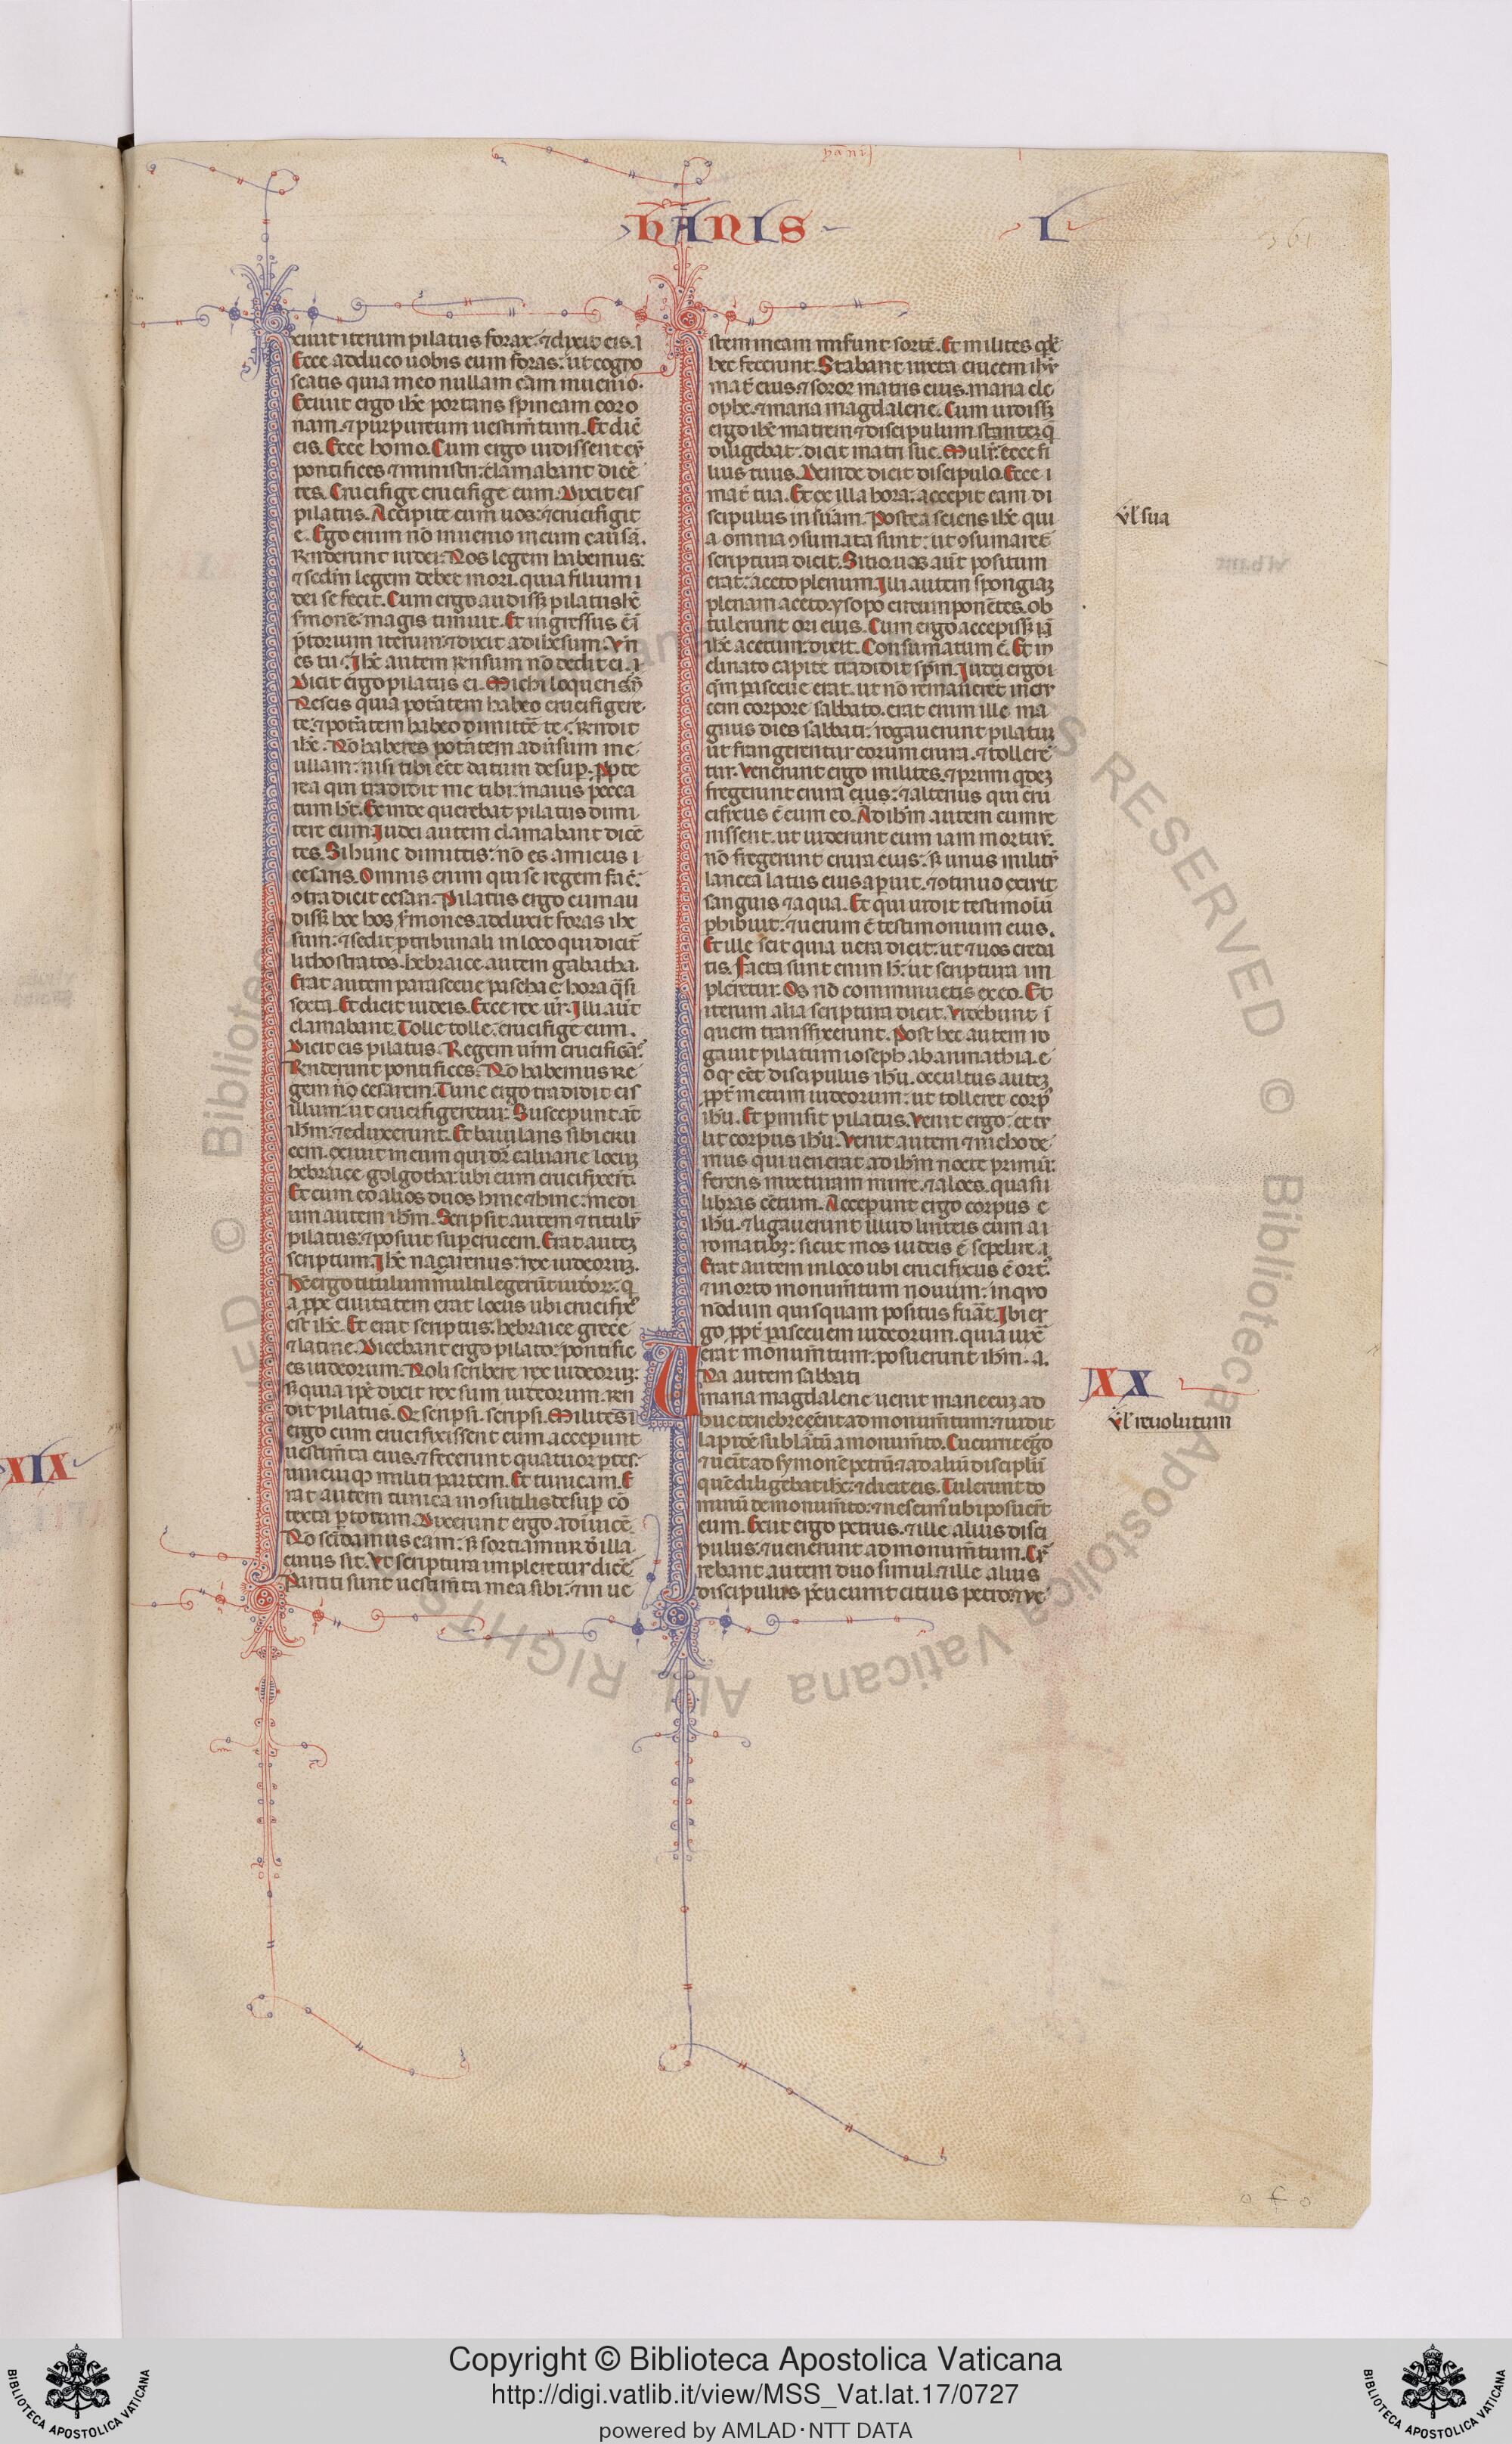 hanis
HANIS
L
361
xiuit iterum pilatus foras: ⁊ dixit eis. i
Ecce adduco uobis eum foras: ut cogno
scatis quia in eo nullam cām inuenio.
Exiuit ergo ihc̄ portans spineam coro
nam. ⁊ purpureum uestim̄tum. Et dic̄
eis. Ecce homo. Cum ergo uidissent eȳ
pontifices ⁊ ministri: clamabant dicē
tes. Crucifige crucifige eum. Dixit eis
pilatus. Accipite eum uos: ⁊ crucifigit
e. Ego enim nō inuenio in eum causā.
Rn̄derunt iudei. Nos legem habemus:
⁊ sc̄dm legem debet mori. quia filium i
dei se fecit. Cum ergo audiss; pilatus hc̄
sm̄onē: magis timuit. Et ingressus ē ī
p̄torium iterum: ⁊ dixit ad ihesum. Vn̄
es tu. Ihc̄ autem rn̄sum nō dedit ei. i
Dicit ergo pilatus ei. Michi loqueris n̄
Nescis quia potātem habeo crucifigere
te: ⁊ potātem habeo dimittē te. Rn̄dit
ihc̄. Nō haberes potātem adūsum me
ullam: nisi tibi eēt datum desup̄. ꝓpte
rea qui tradidit me tibi: maius pecca
tum ht̄. Exinde querebat pilatus dimi
tere eum. Iudei autem clamabant dicē
tes. Si hunc dimittis: nō es amicus i
cesaris. Omnis enim qui se regem fac̄:
ↄtradicit cesari. Pilatus ergo cum au
diss; hoc hos sm̄ones: adduxit foras ihe
sum: ⁊ sedit p̄ tribunali in loco qui dicit̄
lithostratos. hebraice autem gabatha.
Erat autem parasceue pascha ē hora q̄si
sexta. Et dicit iudeis. Ecce rex ur̄. Illi aūt
clamabant. Tolle tolle: crucifige eum.
Dicit eis pilatus. Regem ur̄m crucifigā.
Rn̄derunt pontifices. Nō habemus re
gem n̄ cesarem. Tunc ergo tradidit eis
illum: ut crucifigeretur. Susceperunt aūt
ihm̄: ⁊ eduxerunt. Et baiulans sibi cru
cem. exiuit in eum qui dr̄ caluarie locuz
hebraice golgotha: ubi eum crucifixerūt
Et cum eo alios duos hinc ⁊ hinc: medi
um autem ihm̄. Scripsit autem ⁊ titulȳ
pilatus: ⁊ posuit super crucem. Erat autez
scriptum. Ihc̄ naçarenus: rex iudeoruz.
Hc̄ ergo titulum multi legerūt iudeor̄: q̄
a ꝓpe ciuitatem erat locus ubi crucifix̄
est ihc̄. Et erat scriptus: hebraice grece
⁊ latine. Dicebant ergo pilato: pontific
es iudeorum. Noli scribere rex iudeoruz:
s; quia ipē dixit rex sum iudeorum. Rn̄
dit pilatus. Qd̄ scripsi. scripsi. Milites i
ergo cum crucifixissent eum acceperunt
uestim̄ta eius. ⁊ fecerunt quatuor ꝑtes:
unicuiqꝫ militi partem. Et tunicam. E
rat autem tunica inↄsutilis desup̄ cō
texta ꝑ totum. Dixerunt ergo ad inuicē.
Nō scīdamus eam: s; sortiamur d̄ illa
cuius sit. Ut scriptura impleretur dicē
Partiti sunt uestim̄ta mea sibi: ⁊ in ue
stem meam misunt sortē. Et milites qdē
hec fecerunt. Stabant iuxta crucem ihȳ
mat̄ eius. ⁊ soror matris eius. maria cle
ophe. ⁊ maria magdalene. Cum uidiss;
ergo ihc̄ matrem ⁊ discipulum stantez q̄
diligebat: dicit matri sue. Mulr̄: ecce fi
lius tuus. Deinde dicit discipulo. Ecce i
mat̄ tua. Et ex illa hora: accepit eam di
scipulus in suam. Postea sciens ihc̄ qui
a omnia ↄsumata sunt: ut ↄsumaret̄
scriptura dicit. Sitio. uas aūt positum
erat: aceto plenum. Illi autem spongiaz
plenam aceto. ysopo circumponētes. ob
tulerunt ori eius. Cum ergo accepiss; iā
ihc̄ acetum: dixit. Consumatum ē. Et in
clinato capite tradidit sp̄m. Iudei ergo i
qm̄ pasceue erat. ut nō remanerēt in cru
cem corpore sabbato. erat enim ille ma
gnus dies sabbati: rogauerunt pilatuz
ut frangerentur eorum crura. ⁊ tollerē
tur. Venerunt ergo milites. ⁊ primi qdez
fregerunt crura eius: ⁊ alterius qui cru
cifixus ē cum eo. Ad ihm̄ autem cum ue
nissent. ut uiderunt eum iam mortuȳ:
nō fregerunt crura eius: s; unus militȳ
lancea latus eius aperuit. ⁊ ↄtinuo exiuit
sanguis ⁊ aqua. Et qui uidit testimoīū
ꝑhibuit: ⁊ uerum ē testimonium eius.
Et ille scit quia uera dicit: ut ⁊ uos creda
tis. Facta sunt enim h̄: ut scriptura im
pleretur. Os nō comminuetis ex eo. Et
iterum alia scriptura dicit. Videbunt ī
quem transfixerunt. Post hec autem ro
gauit pilatum ioseph ab arimathia. e
o qd̄ eēt discipulus ihū. occultus autez
ꝓpt̄ metum iudeorum: ut tolleret corp̄
ihū. Et ꝑmisit pilatus. Venit ergo: et tu
lit corpus ihū. Venit autem ⁊ nichode
mus qui uenerat ad ihm̄ nocte primū:
ferens mixturam mirre. ⁊ aloes. quasi i
libras cētum. Acceperunt ergo corpus e
ihū. ⁊ ligauerunt illud linteis cum a i
romatibꝫ: sicut mos iudeis ē sepelire. i
Erat autem in loco ubi crucifixus ē ort̄.
⁊ in orto monum̄tum nouum: in quo
nōdum quisquam positus fuāt. Ibi er
go ꝓpt̄ pasceuem iudeorum. quia iuxē
erat monum̄tum: posuerunt ihm̄. a.
Una autem sabbati
maria magdalene uenit mane cuz ad
huc tenebre eēnt ad monum̄tum: ⁊ uidit
lapidē sublatū a monum̄to. Cucurrit ergo
⁊ uēit ad symonē petrū ⁊ ad aliū discipulū
quē diligebat ihc̄: ⁊ dicit eis. Tulerunt do
minū de monum̄to: ⁊ nescim̄ ubi posuerūt
eum. Exiit ergo petrus. ⁊ ille alius disci
pulus: ⁊ uenerunt ad monum̄tum. Cur̄
rebant autem duo simul: ⁊ ille alius
discipulus p̄cucurrit citius petro: ⁊ ve
ul̓ sua
XX
ul̓ reuolutum
XIX
o f o
© Biblioteca Apostolica Vaticana ALL RIGHTS RESERVED
Copyright © Biblioteca Apostolica Vaticana
http://digi.vatlib.it/view/MSS_Vat.lat.17/0727
powered by AMLAD·NTT DATA
BIBLIOTECA APOSTOLICA VATICANA
BIBLIOTECA APOSTOLICA VATICANA